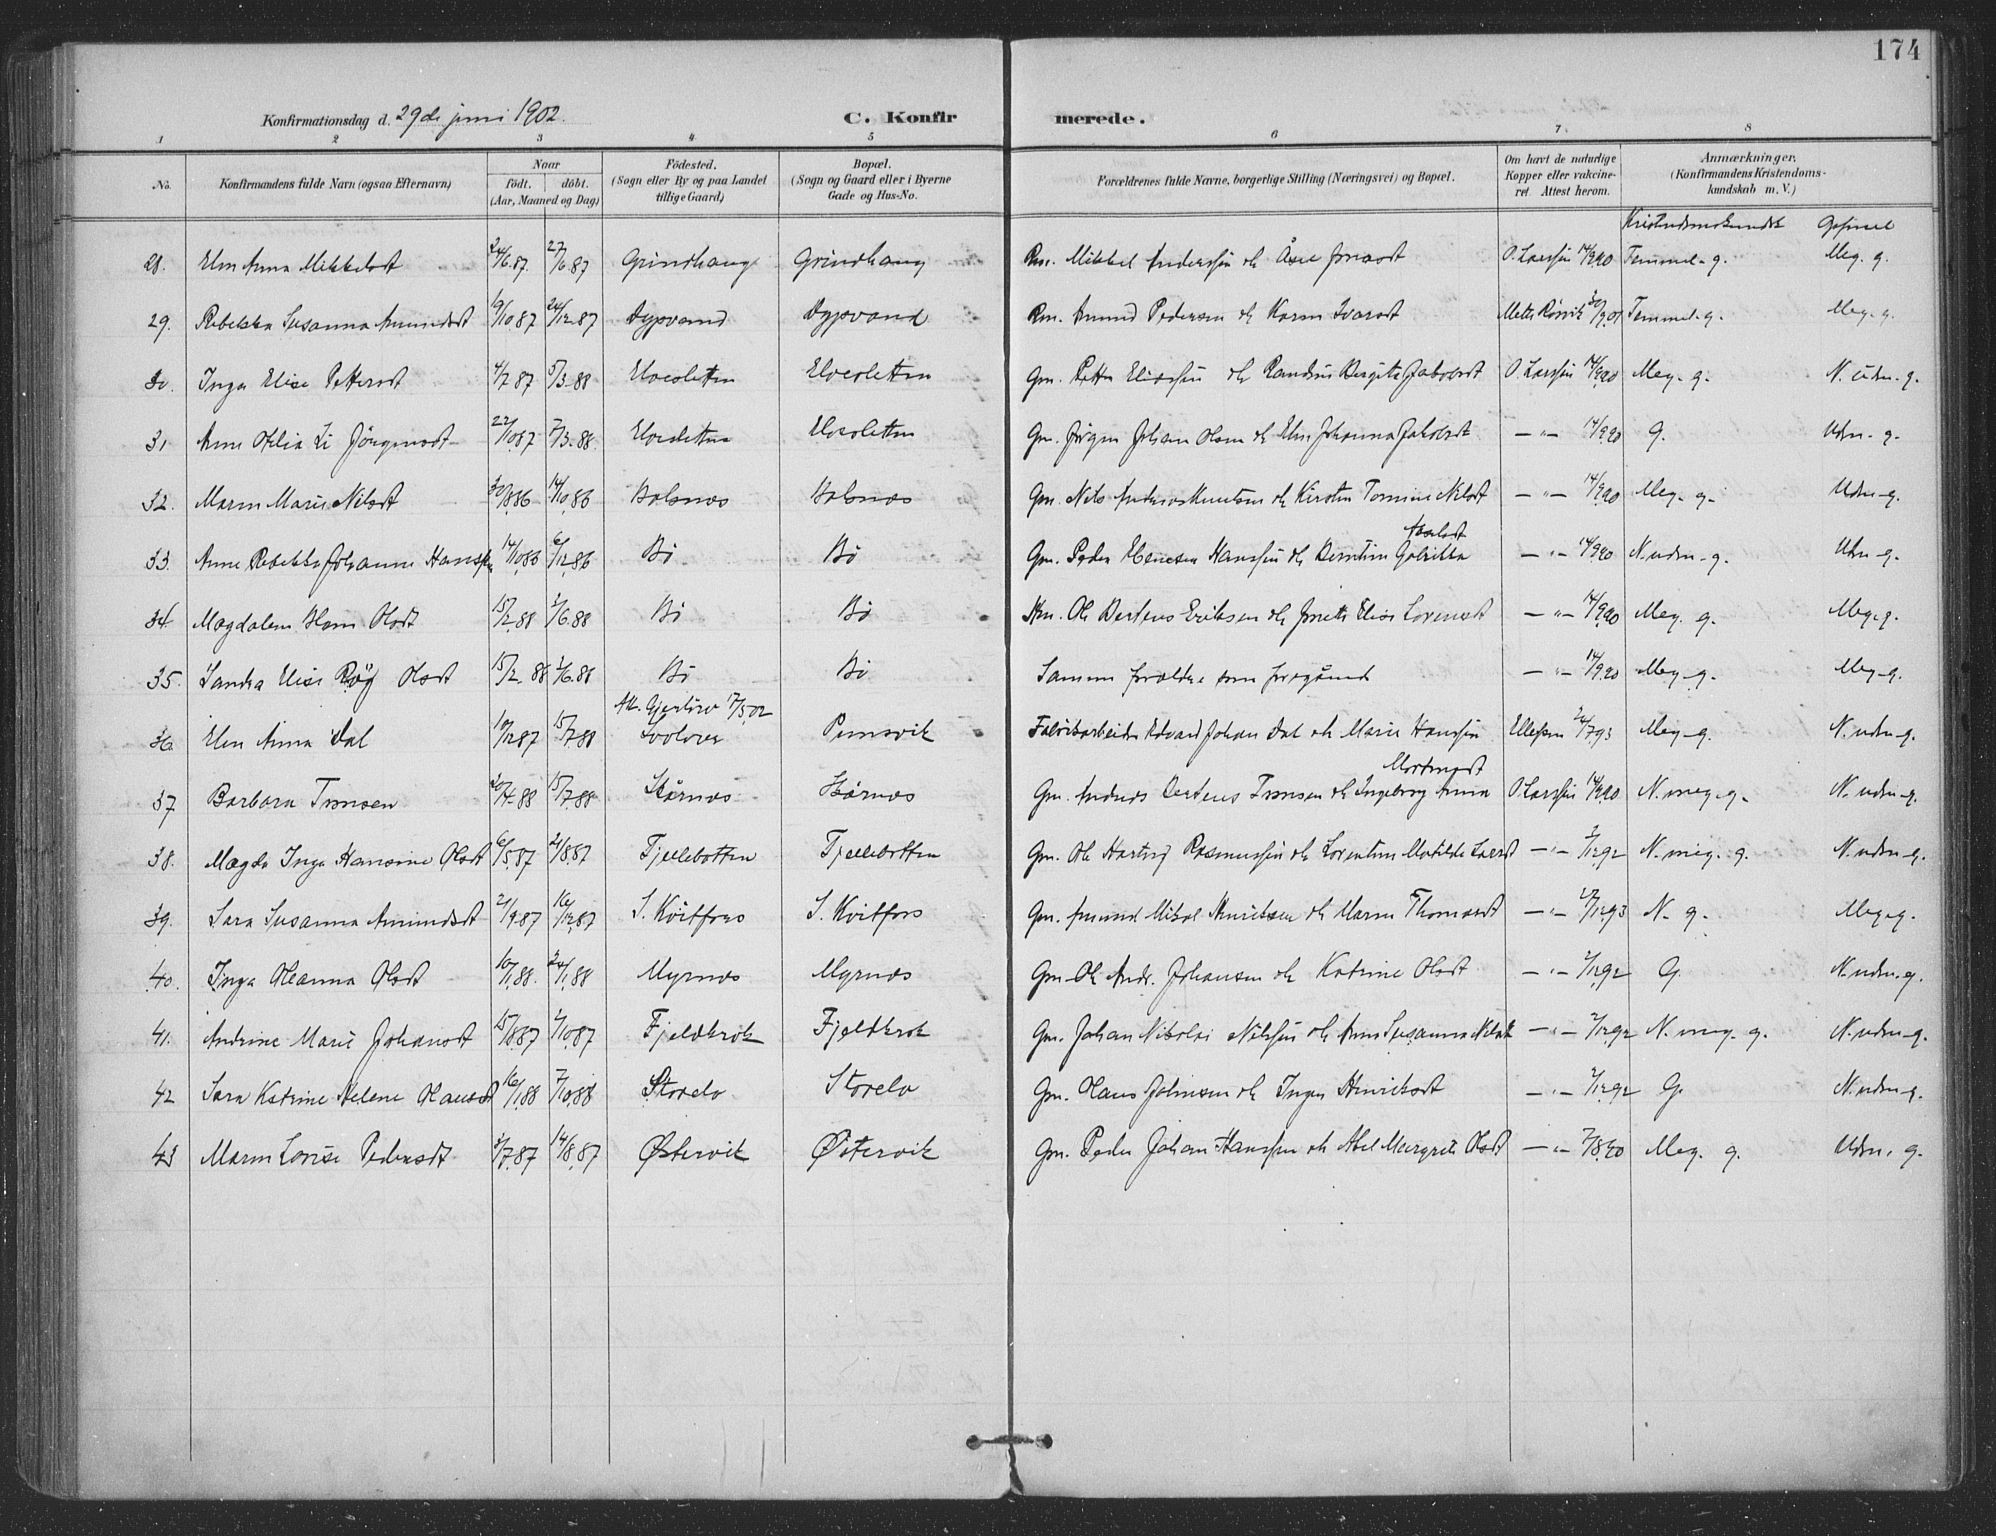 174
Konfirmationsdag d. 29de juni 1902. C. Konfirmerede.
1 2 3 4 5 6 7. 8
No. Konfirmandens fulde Navn (ogsaa Efternavn) Naar födt. döbt. (Aar, Maaned og Dag) Födested. (Sogn eller By og paa Landet tillige Gaard) Bopæl. (Sogn og Gaard eller i Byerne Gade og Hus-No. Forældrenes fulde Navne, borgerlige Stilling (Næringsvei) og Bopæl. Om havt de naturlige Kopper eller vakcineret. Attest herom. Anmærkninger. (Konfirmandens Kristendomskundskab m. V.)
Kristendomskundsk
28. Elen Anna Mikkelsdt 24/6.87 27/6.87 Grindhaug Grindhaug Mikkel Anderssen og Jonasdt O. Larssen 14/9.90 Temmel. g. Meg. g.
29. Rebekka Susanna Amundsdt 19/10 87 24/12.87 Dypvand Dypvand Amund Pedersen og Karen Ivarsdt Temmel. g. Meg. g.
30. Inga Elise Pettersdt 4/7 87 5/3.88 Elvesletten Elvesletten Gm. Petter Eliassen og Bergite Jakobsdt O. Larssen 14/9.90 Meg. g. N. udm. g.
31 Anne Otilia Li Jörgensdt 22/10 87 7/3.88. Elvesletten Elvesletten Gm. Jørgen Johan Olsen og Elen Johanna Jakobsdt — " — 14/9.90 G. Udm. g.
32. Maren Marie Nilsdt 30/8.86 14/10.86 Balsnes Balsnes Gm. Nils Andreas Knutsen og Kirsten Tomine Nilsdt — " — 14/9.90 Meg. g. Udm. g.
33. Anne Rebekka Johanne Hanssen 14/10.86 6/12.86 Bö Bö Gm. Peder Hanssen og — " — 14/9.90 N. udm. g. Udm. g.
34. Magdalena Olsdt 15/2.88 1/6.88 Bö Bö Ole Berteus Eriksen og Elise Lorensdt — " — 14/9.90 Meg. g. Meg. g.
35. Sandra Elise Olsdt 15/2 88 1/6.88 Bö Bö Samme forældre som foregående — " — 14/9.90 Meg. g. Meg. g.
17/5 02
36. Elen Anna Dal 10/12 87 15/7 88 Svolvær Edvard Johan Dal og Marie Hanssen Ellefsen 24/7 93 Meg. g. N. udm. g.
Mortensdt
37 Barbara Tønsen 20/4.88 15/7.88 Gm. Andreas Tønsen og Ingeborg Anna O. Larssen 14/9.90 N. meg. g. N. udm. g.
38. Magda Inga Hansine Olsdt 6/5.87 21/8.87 Fjellbotten Fjellbotten Gm. Ole Hartvig Rasmussen og Lorentine Matilde — " — 2/12.92 N. meg. g. N. udm. g.
39. Sara Susanna Amundsdt 21/9.87 16/12.87 S. Kvitfors S. Kvitfors Gm. Amund Mikal Henriksen og Maren Thomasdt — " — 27/12.93 N. g. Meg. g.
40. Inga Oleanna Olsdt 10/1.88. 24/1.88 Myrnes Myrnes Gm. Ole Andr. Johansen og Katrine Olsdt — " — 2/12.92 G. N. udm. g.
41. Andrine Marie Johansdt 15/8.87 2/10.87 Fjeldkrok Fjeldkrok Gm. Johan Nikolai Nilssen og Anne Susanna Nilsdt — " — 2/12.92 N. meg. g. N. udm. g.
42 Sara Katrine Helene Hansdt 16/1.88 7/10.88 Storelv Storelv Gm. Hans Johnsen og Inger Henriksdt — " — 2/12.92 G. N. udm. g.
43 Maren Lovise Pedersdt 3/7.87 14/8.87 Østervik Østervik Gm. Peder Johan Hanssen og Abel Margrete Olsdt — " — 7/8.90 Meg. g. Udm. g.